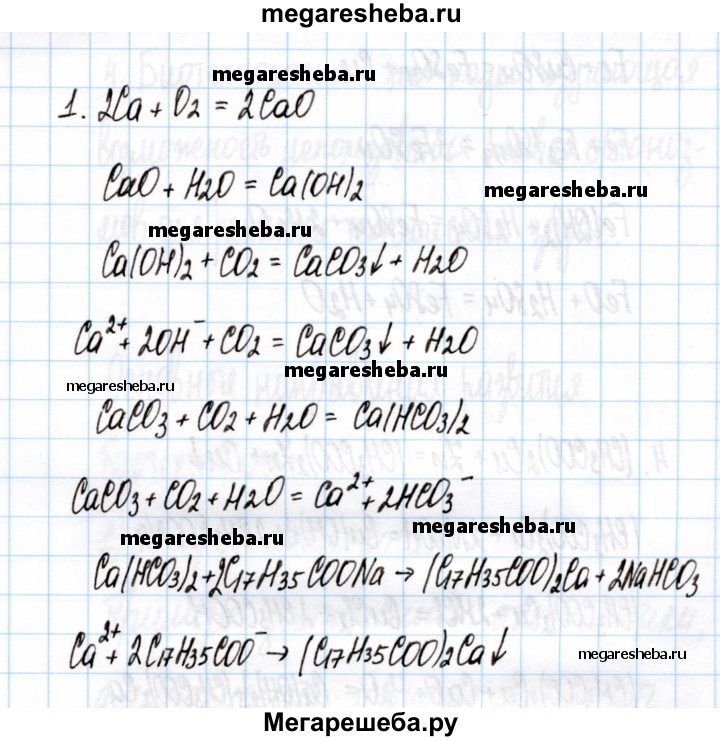 megaresheba.ru
megaresheba.ru
1. 2Ca + O2 = 2CaO
CaO + H2O = Ca(OH)2
megaresheba.ru
megaresheba.ru
Ca(OH)2 + CO2 = CaCO3↓ + H2O
Ca²⁺ + 2OH⁻ + CO2 = CaCO3↓ + H2O
megaresheba.ru
megaresheba.ru
CaCO3 + CO2 + H2O = Ca(HCO3)2
CaCO3 + CO2 + H2O = Ca²⁺ + 2HCO3⁻
megaresheba.ru
megaresheba.ru
Ca(HCO3)2 + 2C17H35COONa → (C17H35COO)2Ca + 2NaHCO3
Ca²⁺ + 2C17H35COO⁻ → (C17H35COO)2Ca↓
megaresheba.ru
Мегарешеба.ру